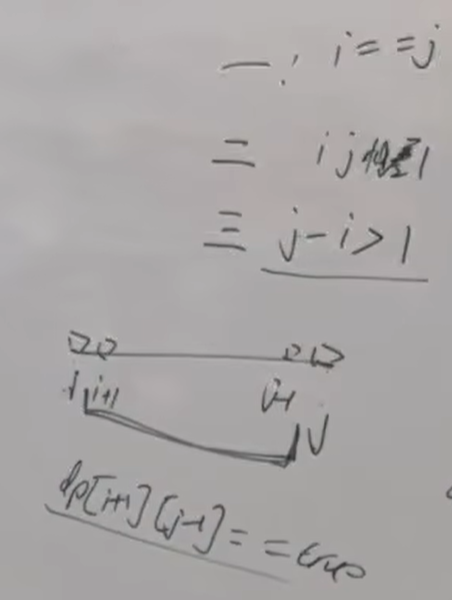 一: i==j
二 i j相差1
三 j-i>1
i i+1 j-1 j
dp[i+1][j-1]==true